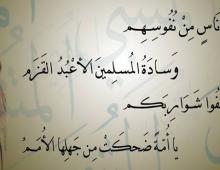 نَاسٍ مِنْ نُفُوسِهِم
وَسَادَةُ المُسلِمينَ الأَعْبُدُ القَزَم
فُوا شَوَارِبَكُم
يَا أُمَّةً ضَحِكَتْ مِن جَهلِهَا الأُمَمُ